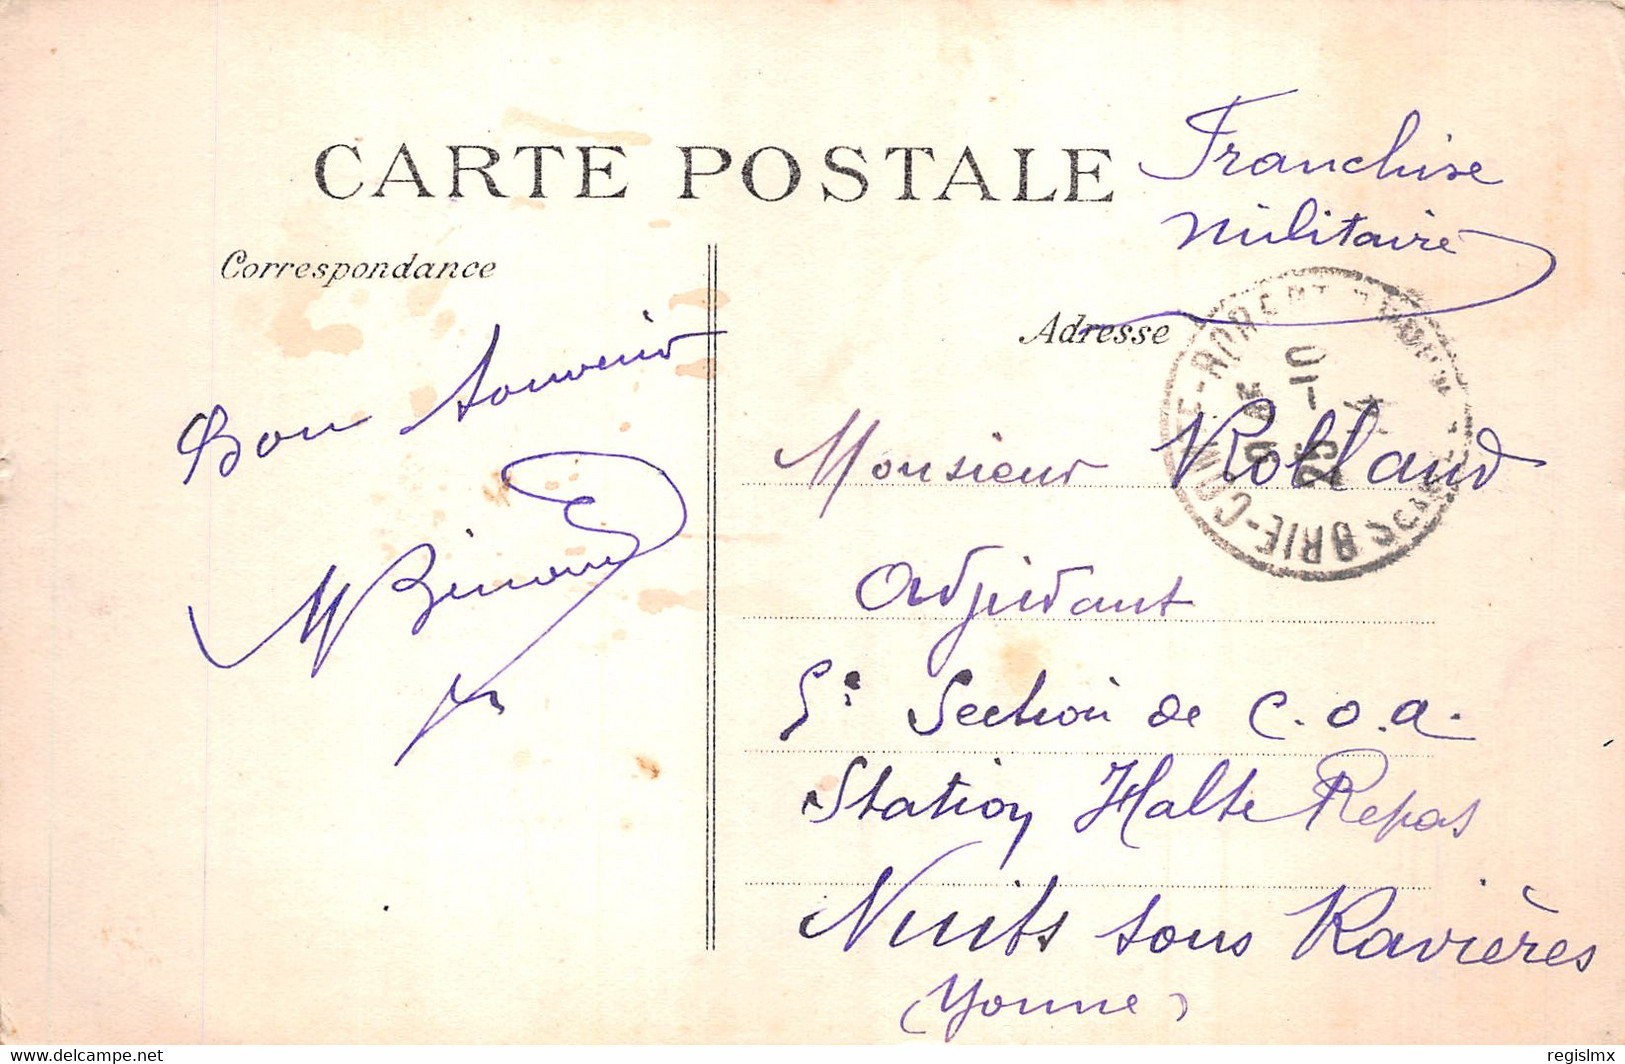 CARTE POSTALE
Franchise
militaire
Correspondance
Adresse
Bon souvenir
Monsieur Rolland
Adjudant
5e Section de C.O.A.
Station Halte Repas
Nuits sous Ravières
(Yonne)
BRIE-COMTE-ROBERT
delcampe.net
regislmx